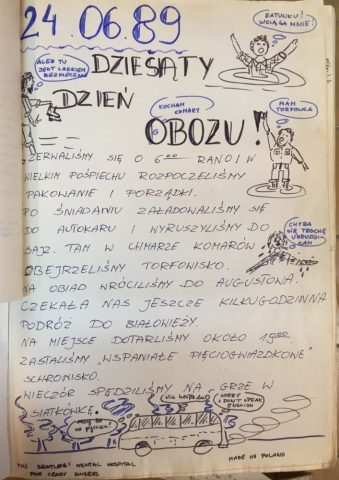 24.06.89
RATUNKU!
WCIĄGA MNIE!
ALEŻ TU
JEST
BEZPIECZNIE
DZIESIĄTY
DZIEŃ
KOCHAM
KOMARY
MAM
TORFOWCA
OBOZU!
ZERWALIŚMY SIĘ O 6⁰⁰ RANO I W
WIELKIM POŚPIECHU ROZPOCZĘLIŚMY
PAKOWANIE I PORZĄDKI.
PO ŚNIADANIU ZAŁADOWALIŚMY SIĘ
DO AUTOKARU I WYRUSZYLIŚMY DO
SAJZ. TAM W CHMARZE KOMARÓW
OBEJRZELIŚMY TORFOWISKO.
CHYBA
SIĘ TROCHĘ
UBRUDZI-
ŁAM
NA OBIAD WRÓCILIŚMY DO AUGUSTOWA.
CZEKAŁA NAS JESZCZE KILKUGODZINNA
PODRÓŻ DO BIAŁOWIEŻY.
NA MIEJSCE DOTARLIŚMY OKOŁO 19⁰⁰
ZASTALIŚMY "WSPANIAŁE PIĘCIOGWIAZDKOWE"
SCHRONISKO.
WIECZÓR SPĘDZILIŚMY NA GRZE W
SIATKÓWKĘ.
SORRY
I DON'T SPEAK
ENGLISH
THE BEATLES! MENTAL HOSPITAL
FOR CRAZY SINGERS
MADE IN POLAND